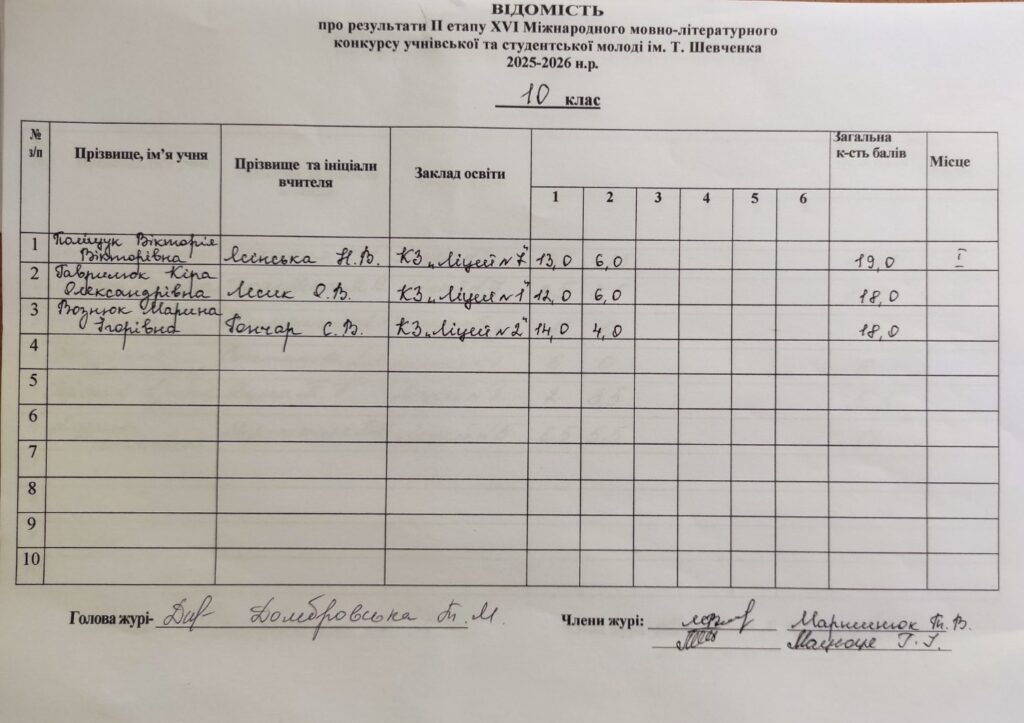 ВІДОМІСТЬ
про результати ІІ етапу XVI Міжнародного мовно-літературного
конкурсу учнівської та студентської молоді ім. Т. Шевченка
2025-2026 н.р.
10 клас
№ з/п Прізвище, ім’я учня Прізвище та ініціали вчителя Заклад освіти Загальна к-сть балів Місце
1 2 3 4 5 6
1 Поліщук Вікторія Вікторівна Ясінська Н.В. КЗ „Ліцей №7" 13,0 6,0 19,0 І
2 Гаврилюк Кіра Олександрівна Лесик О.В. КЗ „Ліцей №1" 12,0 6,0 18,0
3 Вознюк Марина Ігорівна Гончар С.В. КЗ „Ліцей №2" 14,0 4,0 18,0
4
5
6
7
8
9
10
Голова журі- Домбровська Т.М. Члени журі: Мартинюк Т.В.
Г.І.